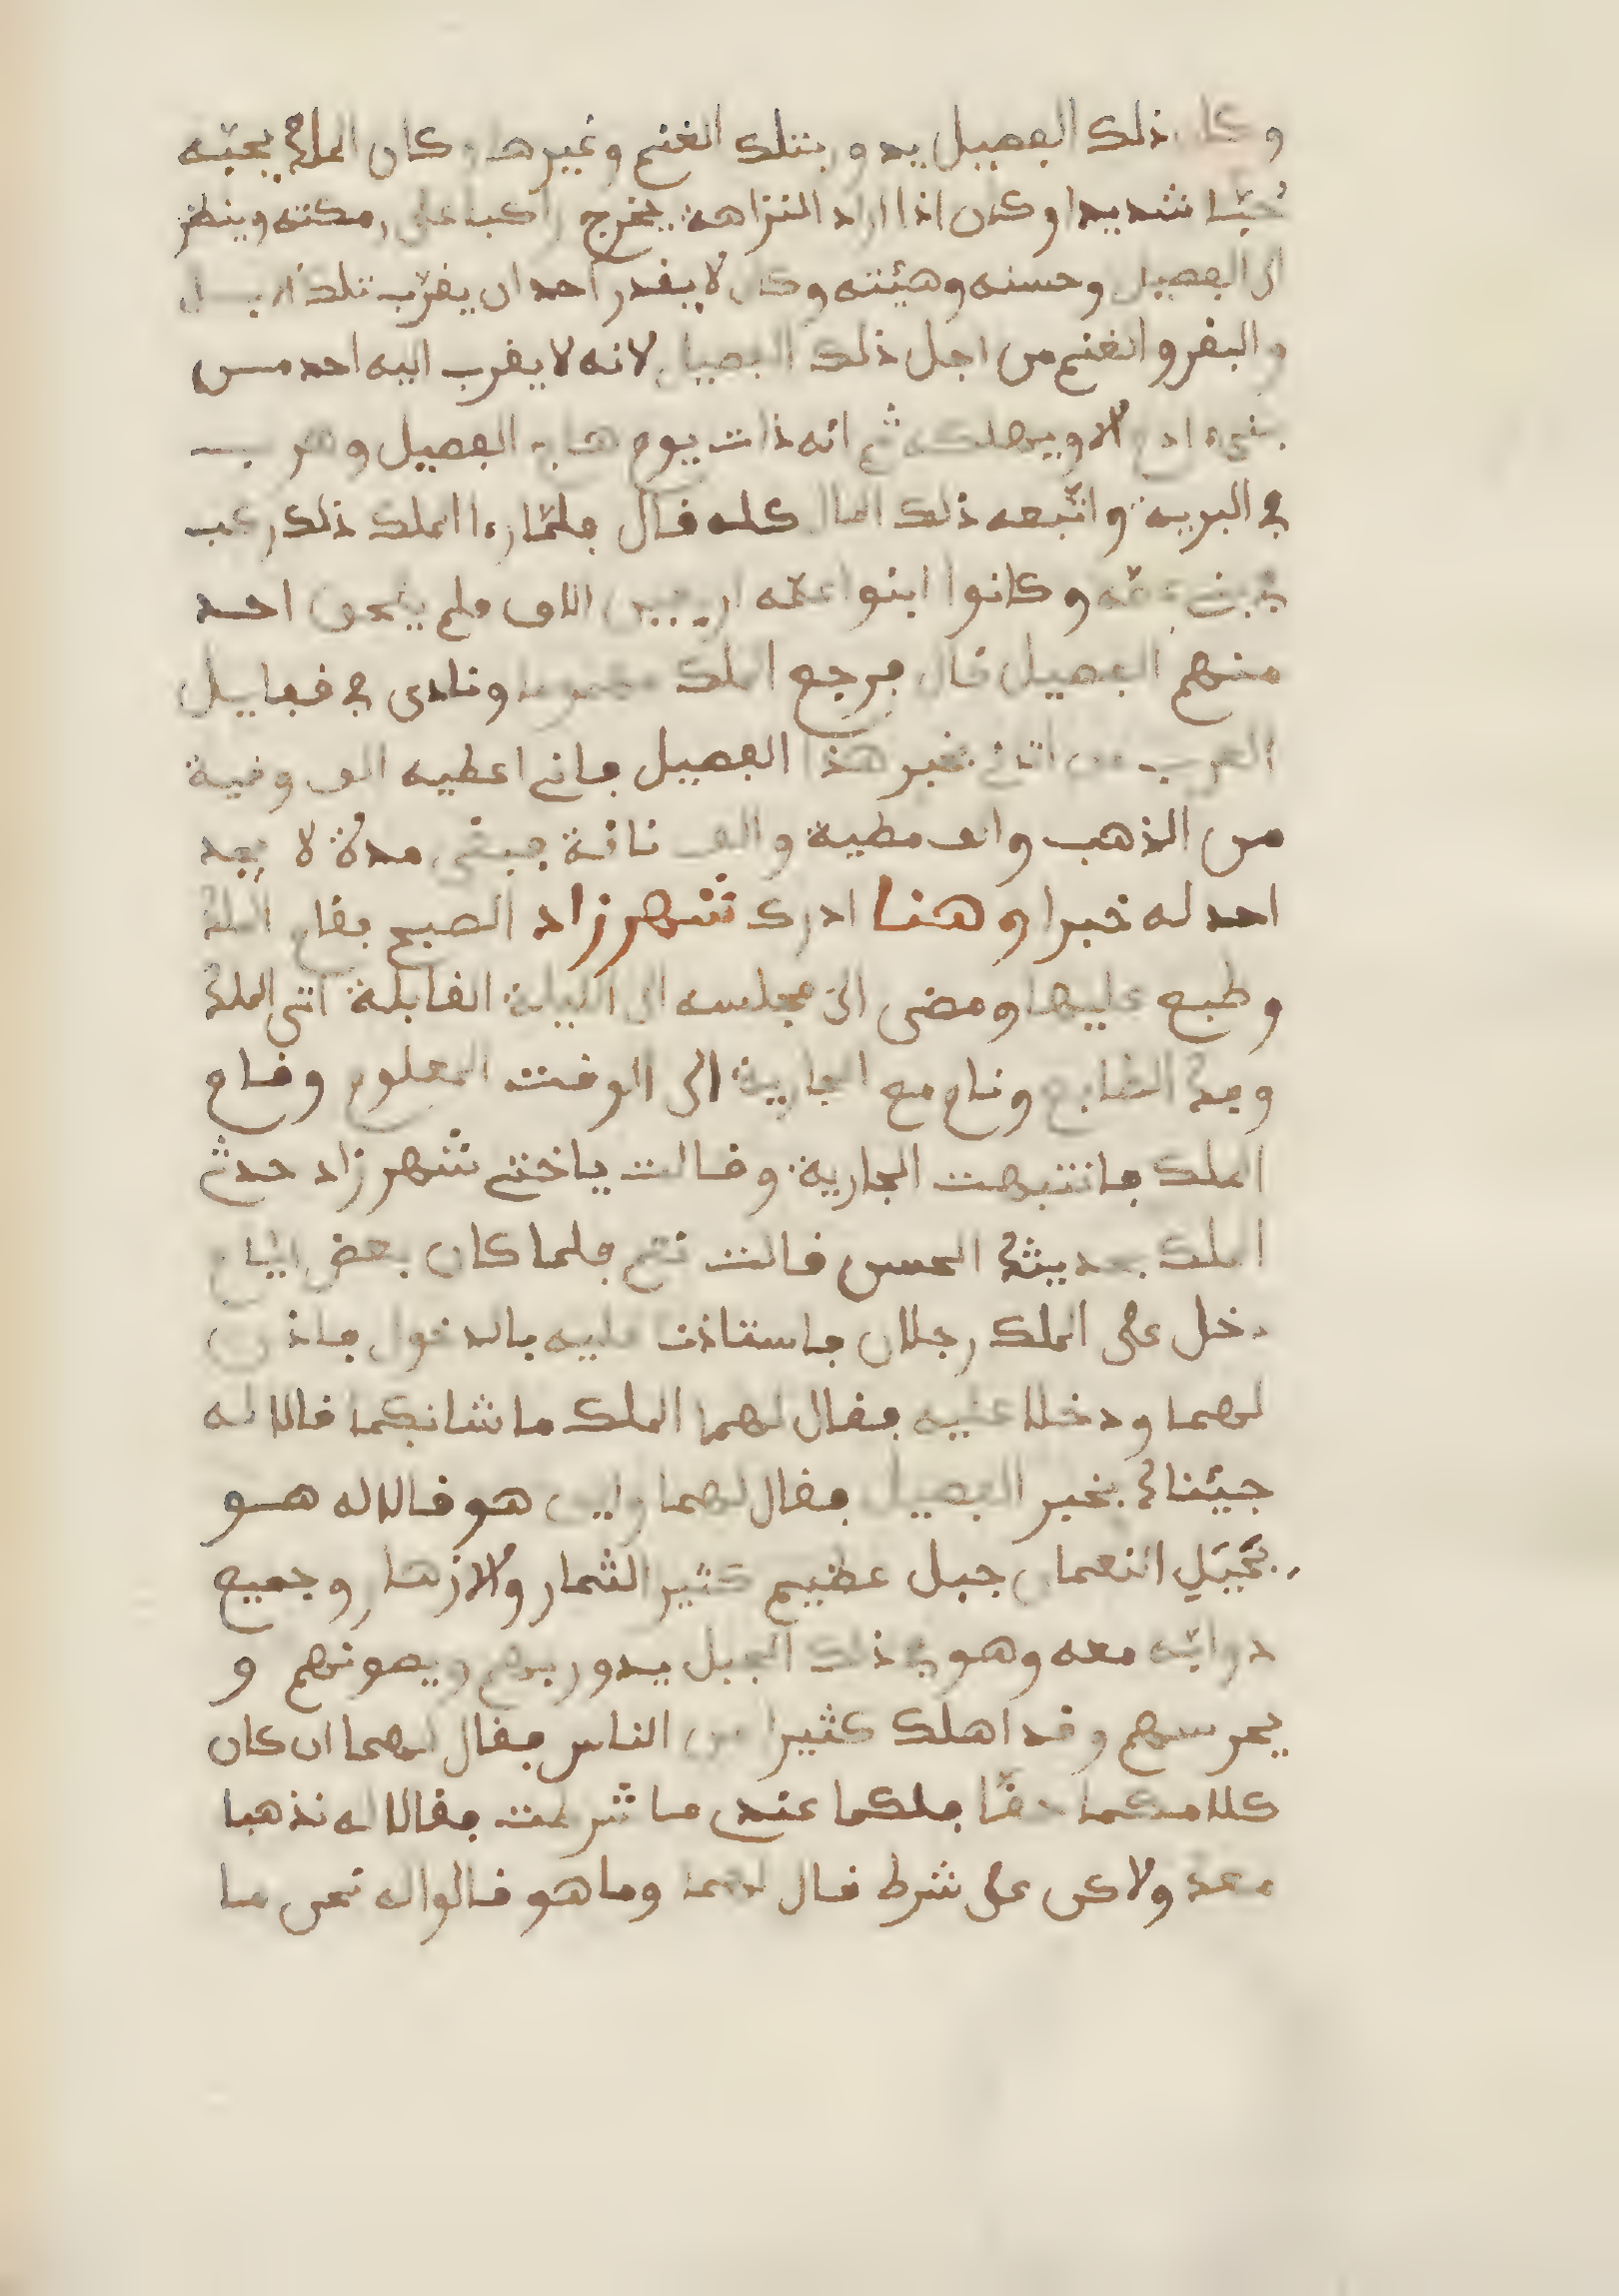 وكان ذلك الفصيل يدور بتلك الغنم وغيرها وكان الملك يحبّه
حبّا شديدا وكان اذا اراد النزاهة يخرج راكب على رمكته وينظر
الى الفصيل وحسنه وهيئته وكان لا يقدر احد ان يقرّب تلك الابل
والبقر والغنم من اجل ذلك الفصيل لانه لا يقرب اليه احد من
بنيء ادم الا ويهلكه ثم انه ذات يوم هاج الفصيل وهرب
في البرية واتّبعه ذلك المال كله قال فلمّا رءا الملك ذلك ركب
عمّه وكانوا ابنوا عمّه اربعين الاف فلم يلحق احد
منهم الفصيل قال فرجع الملك مغموما ونادى في قبايل
العرب من اتاني بخبر هذا الفصيل فاني اعطيه الف وقية
من الذهب والف مطية والف ناقة فبقى مدة لا يجد
احد له خبرا وهنا ادرك شهرزاد الصبح فقام الملك
وطبع عليها ومضى الى مجلسه الى الليلة القابلة اتى الملك
وفك الطابع ونام مع الجارية الى الوقت المعلوم وقام
الملك فانتبهت الجارية وقالت ياختي شهرزاد حدث
الملك بحديثك الحسن قالت نعم فلما كان بعض اليام
دخل على الملك رجلان فاستاذن عليه بالدخول فاذن
لهما ودخلا عليه فقال لهما الملك ما شانكما قالا له
جيئناك بخبر الفصيل فقال لهما واين هو قالا له هو
بجبَلِ النعمان جبل عظيم كثير الثمار والازهار وجميع
دوابّه معه وهو في ذلك الجبل يدور بهم ويصونهم و
يحرسهم وقد اهلك كثيرا من الناس فقال لهما ان كان
كلامكما حقّا فلكما عندي ما شرطت فقالا له نذهبا
معك ولاكن على شرط قال لهما وما هو قالوا له نحن ما